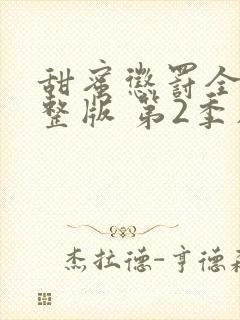 甜蜜惩罚全
整版 第2季
杰拉德-亨德